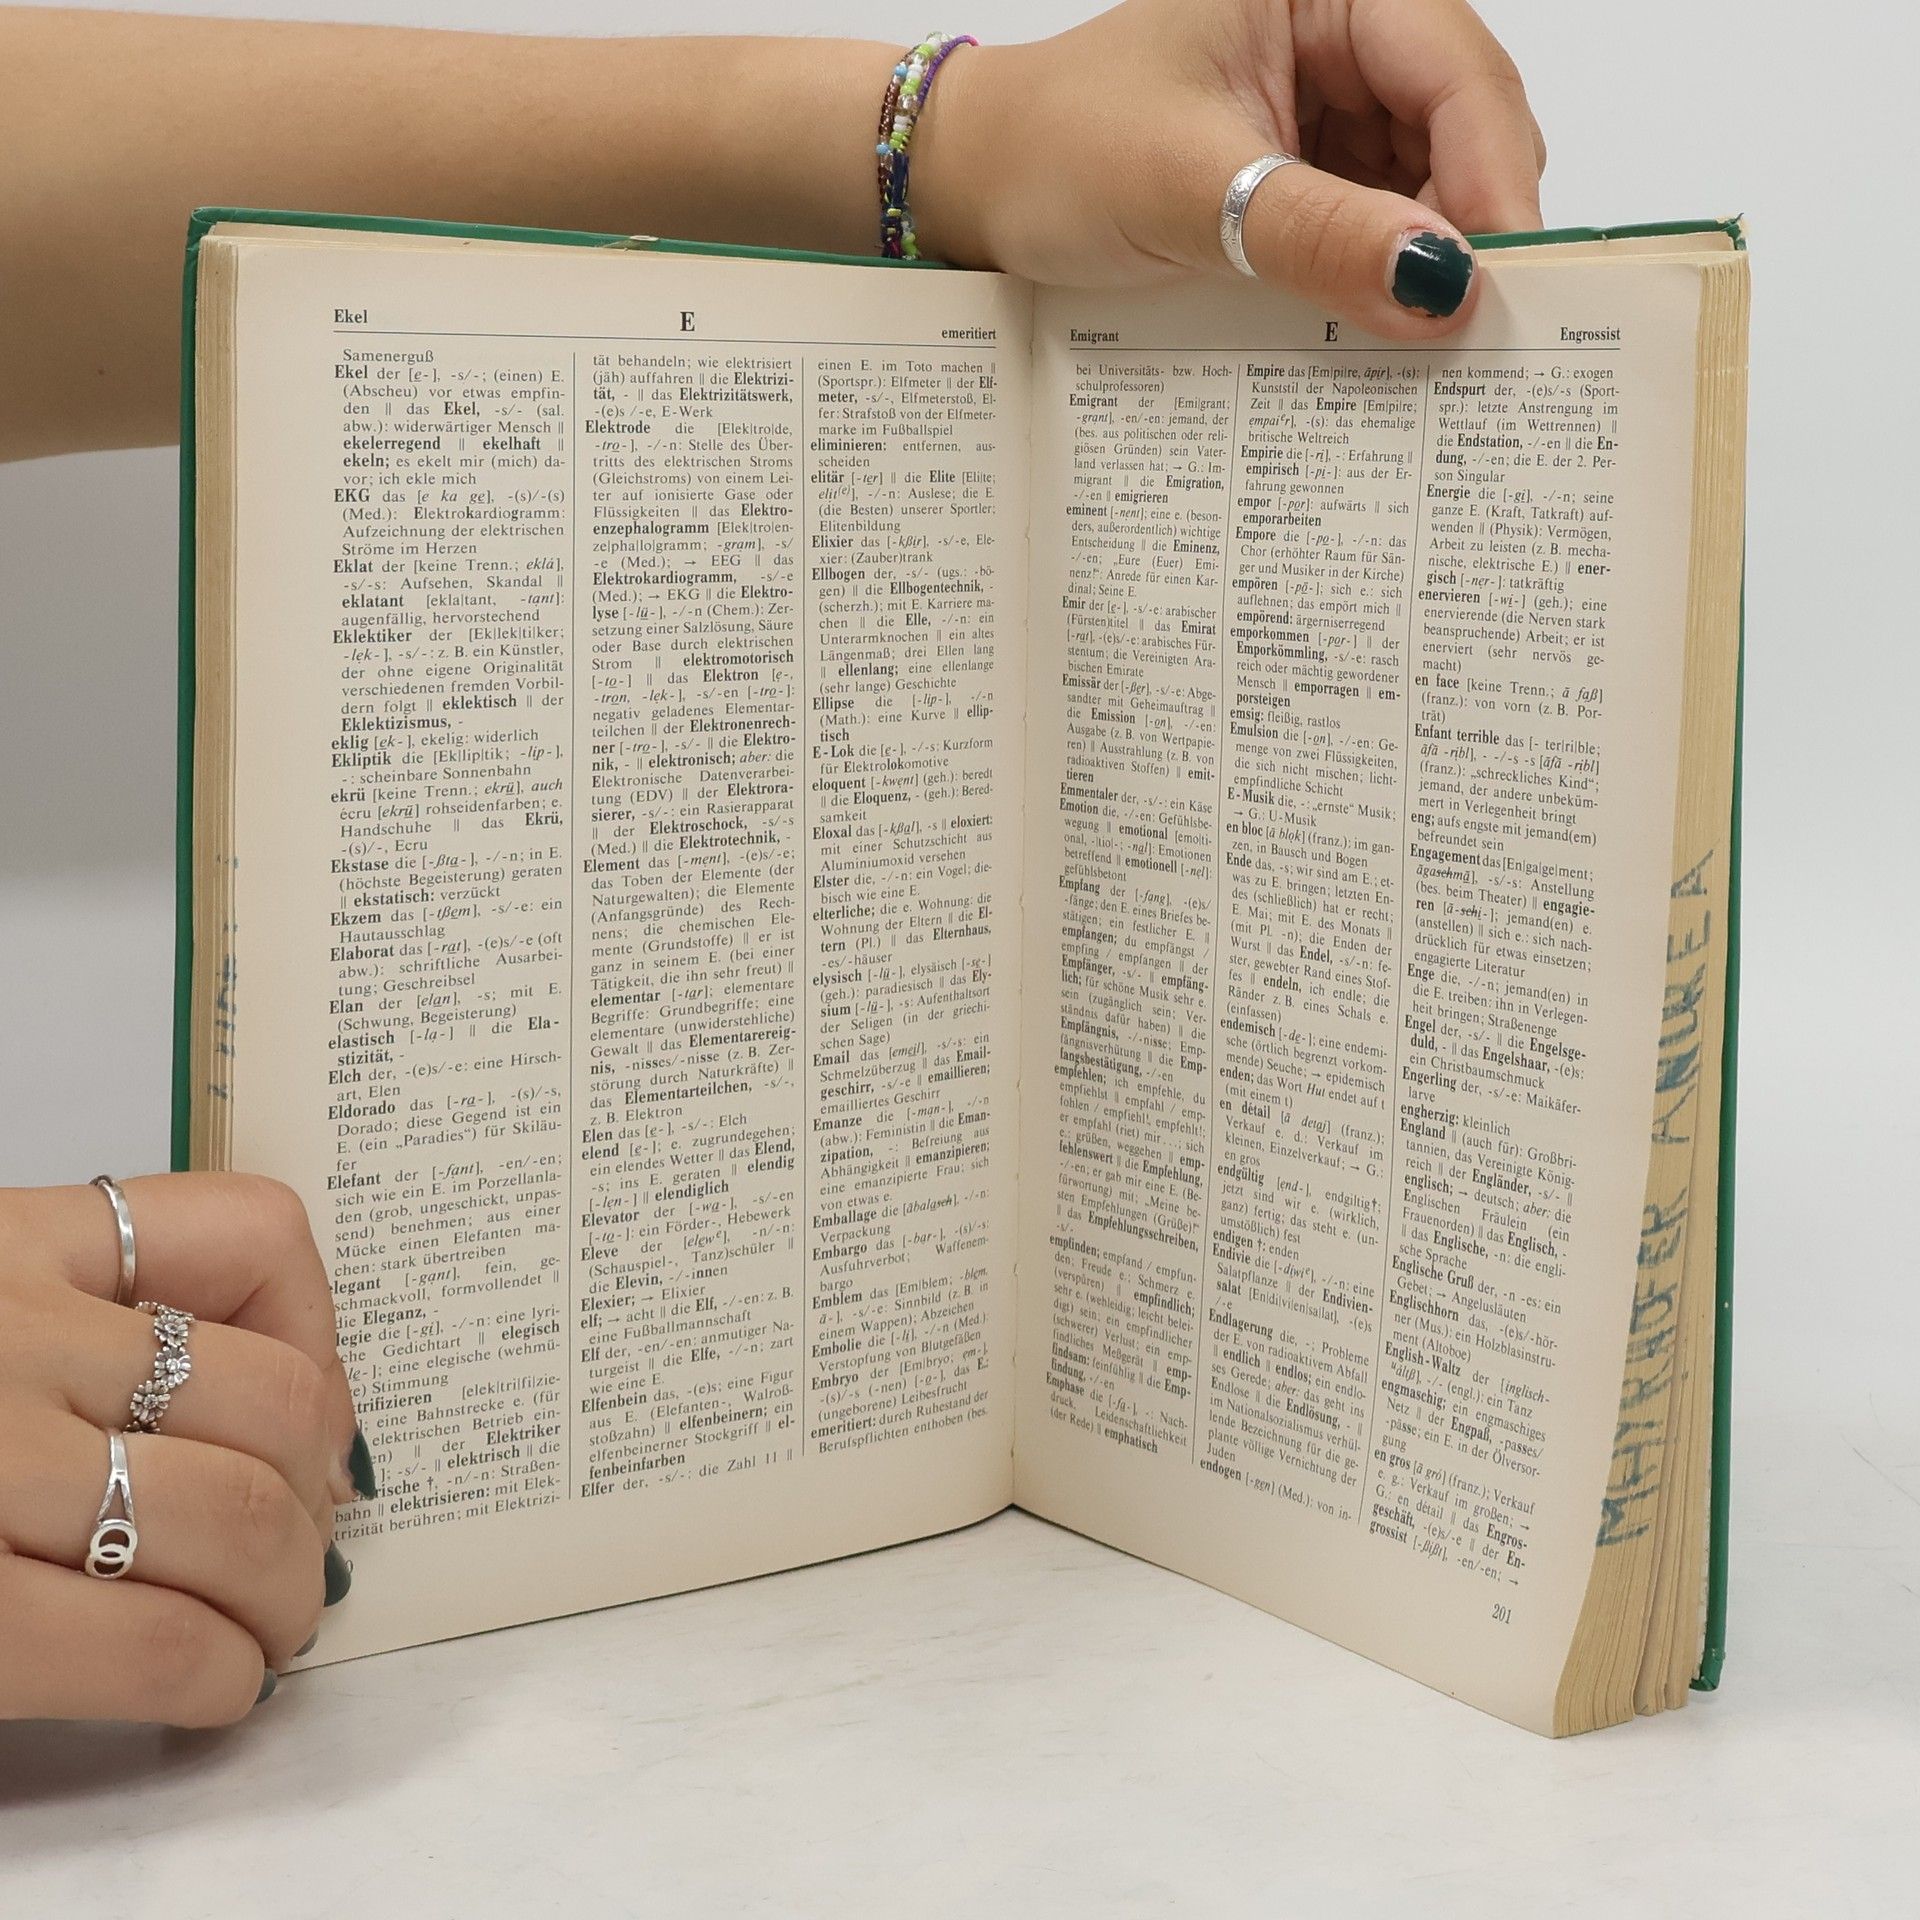 Ekel
E
emeritiert
Samenerguß
Ekel der [e-], -s/-; (einen) E.
(Abscheu) vor etwas empfin-
den || das Ekel, -s/- (sal.
abw.): widerwärtiger Mensch ||
ekelerregend || ekelhaft ||
ekeln; es ekelt mir (mich) da-
vor; ich ekle mich
EKG das [e ka ge], -(s)/-(s)
(Med.): Elektrokardiogramm:
Aufzeichnung der elektrischen
Ströme im Herzen
Eklat der [keine Trenn.; eklá],
-s/-s: Aufsehen, Skandal ||
eklatant [ekla|tant, -tant]:
augenfällig, hervorstechend
Eklektiker der [Ek|lek|ti|ker;
-lek-], -s/-: z. B. ein Künstler,
der ohne eigene Originalität
verschiedenen fremden Vorbil-
dern folgt || eklektisch || der
Eklektizismus, -
eklig [ek-], ekelig: widerlich
Ekliptik die [Ek|lip|tik; -lip-],
-: scheinbare Sonnenbahn
ekrü [keine Trenn.; ekrü], auch
écru [ekrü] rohseidenfarben; e.
Handschuhe || das Ekrü,
-(s)/-, Ecru
Ekstase die [-ßta-], -/-n; in E.
(höchste Begeisterung) geraten
|| ekstatisch: verzückt
Ekzem das [-tßem], -s/-e: ein
Hautausschlag
Elaborat das [-rat], -(e)s/-e (oft
abw.): schriftliche Ausarbei-
tung; Geschreibsel
Elan der [elan], -s; mit E.
(Schwung, Begeisterung)
elastisch [-la-] || die Ela-
stizität, -
Elch der, -(e)s/-e: eine Hirsch-
art, Elen
Eldorado das [-ra-], -(s)/-s,
Dorado; diese Gegend ist ein
E. (ein „Paradies“) für Skiläu-
fer
Elefant der [-fant], -en/-en;
sich wie ein E. im Porzellanla-
den (grob, ungeschickt, unpas-
send) benehmen; aus einer
Mücke einen Elefanten ma-
chen: stark übertreiben
legant [-gant], fein, ge-
schmackvoll, formvollendet ||
die Eleganz, -
legie die [-gi], -/-n: eine lyri-
che Gedichtart || elegisch
le-]; eine elegische (wehmü-
e) Stimmung
trifizieren [elek|tri|fi|zie-
]; eine Bahnstrecke e. (für
elektrischen Betrieb ein-
en) || der Elektriker
]; -s/- || elektrisch || die
rische †, -n/-n: Straßen-
bahn || elektrisieren: mit Elek-
trizität berühren; mit Elektrizi-
0
tät behandeln; wie elektrisiert
(jäh) auffahren || die Elektrizi-
tät, - || das Elektrizitätswerk,
-(e)s /-e, E-Werk
Elektrode die [Elek|tro|de,
-tro-], -/-n: Stelle des Über-
tritts des elektrischen Stroms
(Gleichstroms) von einem Lei-
ter auf ionisierte Gase oder
Flüssigkeiten || das Elektro-
enzephalogramm [Elek|tro|en-
ze|pha|lo|gramm; -gram], -s/
-e (Med.); → EEG || das
Elektrokardiogramm, -s/-e
(Med.); → EKG || die Elektro-
lyse [-lü-], -/-n (Chem.): Zer-
setzung einer Salzlösung, Säure
oder Base durch elektrischen
Strom || elektromotorisch
[-to-] || das Elektron [e-,
-tron, -lek-], -s/-en [-tro-]:
negativ geladenes Elementar-
teilchen || der Elektronenrech-
ner [-tro-], -s/- || die Elektro-
nik, - || elektronisch; aber: die
Elektronische Datenverarbei-
tung (EDV) || der Elektrora-
sierer, -s/-: ein Rasierapparat
|| der Elektroschock, -s/-s
(Med.) || die Elektrotechnik, -
Element das [-ment], -(e)s/-e;
das Toben der Elemente (der
Naturgewalten); die Elemente
(Anfangsgründe) des Rech-
nens; die chemischen Ele-
mente (Grundstoffe) || er ist
ganz in seinem E. (bei einer
Tätigkeit, die ihn sehr freut) ||
elementar [-tar]; elementare
Begriffe: Grundbegriffe; eine
elementare (unwiderstehliche)
Gewalt || das Elementarereig-
nis, -nisses/-nisse (z. B. Zer-
störung durch Naturkräfte) ||
das Elementarteilchen, -s/-,
z. B. Elektron
Elen das [e-], -s/-: Elch
elend [e-]; e. zugrundegehen;
ein elendes Wetter || das Elend,
-s; ins E. geraten || elendig
[-len-] || elendiglich
Elevator der [-wa-], -s/-en
[-to-]: ein Förder-, Hebewerk
Eleve der [elewᵉ], -n/-n:
(Schauspiel-, Tanz)schüler ||
die Elevin, -/-innen
Elexier; → Elixier
elf; → acht || die Elf, -/-en: z. B.
eine Fußballmannschaft
Elf der, -en/-en: anmutiger Na-
turgeist || die Elfe, -/-n; zart
wie eine E.
Elfenbein das, -(e)s; eine Figur
aus E. (Elefanten-, Walroß-
stoßzahn) || elfenbeinern; ein
elfenbeinerner Stockgriff || el-
fenbeinfarben
Elfer der, -s/-: die Zahl 11 ||
einen E. im Toto machen ||
(Sportspr.): Elfmeter || der Elf-
meter, -s/-, Elfmeterstoß, El-
fer: Strafstoß von der Elfmeter-
marke im Fußballspiel
eliminieren: entfernen, aus-
scheiden
elitär [-ter] || die Elite [Eli|te;
elit⁽ᵉ⁾], -/-n: Auslese; die E.
(die Besten) unserer Sportler;
Elitenbildung
Elixier das [-kßir], -s/-e, Ele-
xier: (Zauber)trank
Ellbogen der, -s/- (ugs.: -bö-
gen) || die Ellbogentechnik, -
(scherzh.); mit E. Karriere ma-
chen || die Elle, -/-n: ein
Unterarmknochen || ein altes
Längenmaß; drei Ellen lang
|| ellenlang; eine ellenlange
(sehr lange) Geschichte
Ellipse die [-lip-], -/-n
(Math.): eine Kurve || ellip-
tisch
E-Lok die [e-], -/-s: Kurzform
für Elektrolokomotive
eloquent [-kwent] (geh.): beredt
|| die Eloquenz, - (geh.): Bered-
samkeit
Eloxal das [-kßal], -s || eloxiert:
mit einer Schutzschicht aus
Aluminiumoxid versehen
Elster die, -/-n: ein Vogel; die-
bisch wie eine E.
elterliche; die e. Wohnung: die
Wohnung der Eltern || die El-
tern (Pl.) || das Elternhaus,
-es/-häuser
elysisch [-lü-], elysäisch [-sä-]
(geh.): paradiesisch || das Ely-
sium [-lü-], -s: Aufenthaltsort
der Seligen (in der griechi-
schen Sage)
Email das [emejl], -s/-s: ein
Schmelzüberzug || das Email-
geschirr, -s/-e || emaillieren;
emailliertes Geschirr
Emanze die [-man-], -/-n
(abw.): Feministin || die Eman-
zipation, -: Befreiung aus
Abhängigkeit || emanzipieren;
eine emanzipierte Frau; sich
von etwas e.
Emballage die [ãbalasch], -/-n:
Verpackung
Embargo das [-bar-], -(s)/-s:
Ausfuhrverbot; Waffenem-
bargo
Emblem das [Em|blem; -blem,
ã-], -s/-e: Sinnbild (z. B. in
einem Wappen); Abzeichen
Embolie die [-li], -/-n (Med.):
Verstopfung von Blutgefäßen
Embryo der [Em|bryo; em-],
-(s)/-s (-nen) [-o-], das E.:
(ungeborene) Leibesfrucht
emeritiert: durch Ruhestand der
Berufspflichten enthoben (bes.
Emigrant
E
Engrossist
bei Universitäts- bzw. Hoch-
schulprofessoren)
Emigrant der [Emi|grant;
-grant], -en/-en: jemand, der
(bes. aus politischen oder reli-
giösen Gründen) sein Vater-
land verlassen hat; → G.: Im-
migrant || die Emigration,
-/-en || emigrieren
eminent [-nent]; eine e. (beson-
ders, außerordentlich) wichtige
Entscheidung || die Eminenz,
-/-en; „Eure (Euer) Emi-
nenz!“: Anrede für einen Kar-
dinal; Seine E.
Emir der [e-], -s/-e: arabischer
(Fürsten)titel || das Emirat
[-rat], -(e)s/-e: arabisches Für-
stentum; die Vereinigten Ara-
bischen Emirate
Emissär der [-ßer], -s/-e: Abge-
sandter mit Geheimauftrag ||
die Emission [-on], -/-en:
Ausgabe (z. B. von Wertpapie-
ren) || Ausstrahlung (z. B. von
radioaktiven Stoffen) || emit-
tieren
Emmentaler der, -s/-: ein Käse
Emotion die, -/-en: Gefühlsbe-
wegung || emotional [emo|ti-
onal, -|tio|-; -nal]: Emotionen
betreffend || emotionell [-nel]:
gefühlsbetont
Empfang der [-fang], -(e)s/
-fänge; den E. eines Briefes be-
stätigen; ein festlicher E. ||
empfangen; du empfängst /
empfing / empfangen || der
Empfänger, -s/- || empfäng-
lich; für schöne Musik sehr e.
sein (zugänglich sein; Ver-
ständnis dafür haben) || die
Empfängnis, -/-nisse; Emp-
fängnisverhütung || die Emp-
fangsbestätigung, -/-en
empfehlen; ich empfehle, du
empfiehlst || empfahl / emp-
fohlen / empfiehl!, empfehlt!;
er empfahl (riet) mir . . .; sich
e.: grüßen, weggehen || emp-
fehlenswert || die Empfehlung,
-/-en; er gab mir eine E. (Be-
fürwortung) mit; „Meine be-
sten Empfehlungen (Grüße)!“
|| das Empfehlungsschreiben,
-s/-
empfinden; empfand / empfun-
den; Freude e.; Schmerz e.
(verspüren) || empfindlich;
sehr e. (wehleidig; leicht belei-
digt) sein; ein empfindlicher
(schwerer) Verlust; ein emp-
findliches Meßgerät || emp-
findsam: feinfühlig || die Emp-
findung, -/-en
Emphase die [-fa-], -: Nach-
druck, Leidenschaftlichkeit
(der Rede) || emphatisch
Empire das [Em|pi|re, ãpir], -(s):
Kunststil der Napoleonischen
Zeit || das Empire [Em|pi|re;
empaiᵉr], -(s): das ehemalige
britische Weltreich
Empirie die [-ri], -: Erfahrung ||
empirisch [-pi-]: aus der Er-
fahrung gewonnen
empor [-por]: aufwärts || sich
emporarbeiten
Empore die [-po-], -/-n: das
Chor (erhöhter Raum für Sän-
ger und Musiker in der Kirche)
empören [-pö-]; sich e.: sich
auflehnen; das empört mich ||
empörend: ärgerniserregend
emporkommen [-por-] || der
Emporkömmling, -s/-e: rasch
reich oder mächtig gewordener
Mensch || emporragen || em-
porsteigen
emsig: fleißig, rastlos
Emulsion die [-on], -/-en: Ge-
menge von zwei Flüssigkeiten,
die sich nicht mischen; licht-
empfindliche Schicht
E-Musik die, -: „ernste“ Musik;
→ G.: U-Musik
en bloc [ã blok] (franz.): im gan-
zen, in Bausch und Bogen
Ende das, -s; wir sind am E.; et-
was zu E. bringen; letzten En-
des (schließlich) hat er recht;
E. Mai; mit E. des Monats ||
(mit Pl. -n); die Enden der
Wurst || das Endel, -s/-n: fe-
ster, gewebter Rand eines Stof-
fes || endeln, ich endle; die
Ränder z. B. eines Schals e.
(einfassen)
endemisch [-de-]; eine endemi-
sche (örtlich begrenzt vorkom-
mende) Seuche; → epidemisch
enden; das Wort Hut endet auf t
(mit einem t)
en détail [ã detaj] (franz.);
Verkauf e. d.: Verkauf im
kleinen, Einzelverkauf; → G.:
en gros
endgültig [end-], endgiltig†;
jetzt sind wir e. (wirklich,
ganz) fertig; das steht e. (un-
umstößlich) fest
endigen †: enden
Endivie die [-diwiᵉ], -/-n: eine
Salatpflanze || der Endivien-
salat [En|di|vi|en|sa|lat], -(e)s
/-e
Endlagerung die, -; Probleme
der E. von radioaktivem Abfall
|| endlich || endlos; ein endlo-
ses Gerede; aber: das geht ins
Endlose || die Endlösung, - ||
im Nationalsozialismus verhül-
lende Bezeichnung für die ge-
plante völlige Vernichtung der
Juden
endogen [-gen] (Med.): von in-
nen kommend; → G.: exogen
Endspurt der, -(e)s/-s (Sport-
spr.): letzte Anstrengung im
Wettlauf (im Wettrennen) ||
die Endstation, -/-en || die En-
dung, -/-en; die E. der 2. Per-
son Singular
Energie die [-gi], -/-n; seine
ganze E. (Kraft, Tatkraft) auf-
wenden || (Physik): Vermögen,
Arbeit zu leisten (z. B. mecha-
nische, elektrische E.) || ener-
gisch [-ner-]: tatkräftig
enervieren [-wi-] (geh.); eine
enervierende (die Nerven stark
beanspruchende) Arbeit; er ist
enerviert (sehr nervös ge-
macht)
en face [keine Trenn.; ã faß]
(franz.): von vorn (z. B. Por-
trät)
Enfant terrible das [- ter|ri|ble;
ãfã -ribl], - -/-s -s [ãfã -ribl]
(franz.): „schreckliches Kind“;
jemand, der andere unbeküm-
mert in Verlegenheit bringt
eng; aufs engste mit jemand(em)
befreundet sein
Engagement das [En|ga|ge|ment;
ãgaschmã], -s/-s: Anstellung
(bes. beim Theater) || engagie-
ren [ã-schi-]; jemand(en) e.
(anstellen) || sich e.: sich nach-
drücklich für etwas einsetzen;
engagierte Literatur
Enge die, -/-n; jemand(en) in
die E. treiben: ihn in Verlegen-
heit bringen; Straßenenge
Engel der, -s/- || die Engelsge-
duld, - || das Engelshaar, -(e)s:
ein Christbaumschmuck
Engerling der, -s/-e: Maikäfer-
larve
engherzig: kleinlich
England || (auch für): Großbri-
tannien, das Vereinigte König-
reich || der Engländer, -s/- ||
englisch; → deutsch; aber: die
Englischen Fräulein (ein
Frauenorden) || das Englisch, -
|| das Englische, -n: die engli-
sche Sprache
Englische Gruß der, -n -es: ein
Gebet; → Angelusläuten
Englischhorn das, -(e)s/-hör-
ner (Mus.): ein Holzblasinstru-
ment (Altoboe)
English-Waltz der [inglisch-
ᵘålß], -/- (engl.): ein Tanz
engmaschig; ein engmaschiges
Netz || der Engpaß, -passes/
-pässe; ein E. in der Ölversor-
gung
en gros [ã gró] (franz.); Verkauf
e. g.: Verkauf im großen; →
G.: en détail || das Engros-
geschäft, -(e)s/-e || der En-
grossist [-ßißt], -en/-en; →
201
MAYRHOFER ANDREA